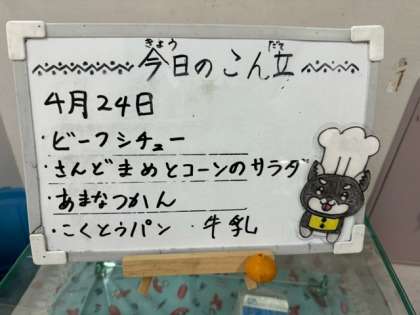 今日のこん立
4月24日
・ビーフシチュー
・さんどまめとコーンのサラダ
・あまなつかん
・こくとうパン ・牛乳